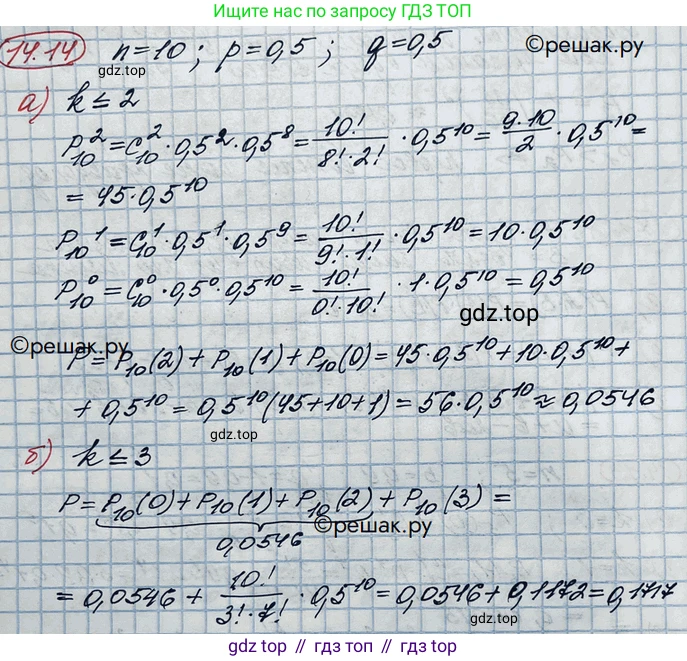 Ищите нас по запросу ГДЗ ТОП
14.14 n=10; p=0,5; q=0,5 ©решак.ру
а) k≤2
P₁₀²=C₁₀²·0,5²·0,5⁸=10!/(8!·2!)·0,5¹⁰=(9·10)/2·0,5¹⁰=
=45·0,5¹⁰
P₁₀¹=C₁₀¹·0,5¹·0,5⁹=10!/(9!·1!)·0,5¹⁰=10·0,5¹⁰
P₁₀⁰=C₁₀⁰·0,5⁰·0,5¹⁰=10!/(0!·10!)·1·0,5¹⁰=0,5¹⁰
gdz.top
©решак.ру
P=P₁₀(2)+P₁₀(1)+P₁₀(0)=45·0,5¹⁰+10·0,5¹⁰+
+0,5¹⁰=0,5¹⁰(45+10+1)=56·0,5¹⁰≈0,0546
gdz.top
б) k≤3
P=P₁₀(0)+P₁₀(1)+P₁₀(2)+P₁₀(3)=
©решак.ру
0,0546
=0,0546+10!/(3!·7!)·0,5¹⁰=0,0546+0,1172=0,1717
gdz.top // гдз топ // gdz.top